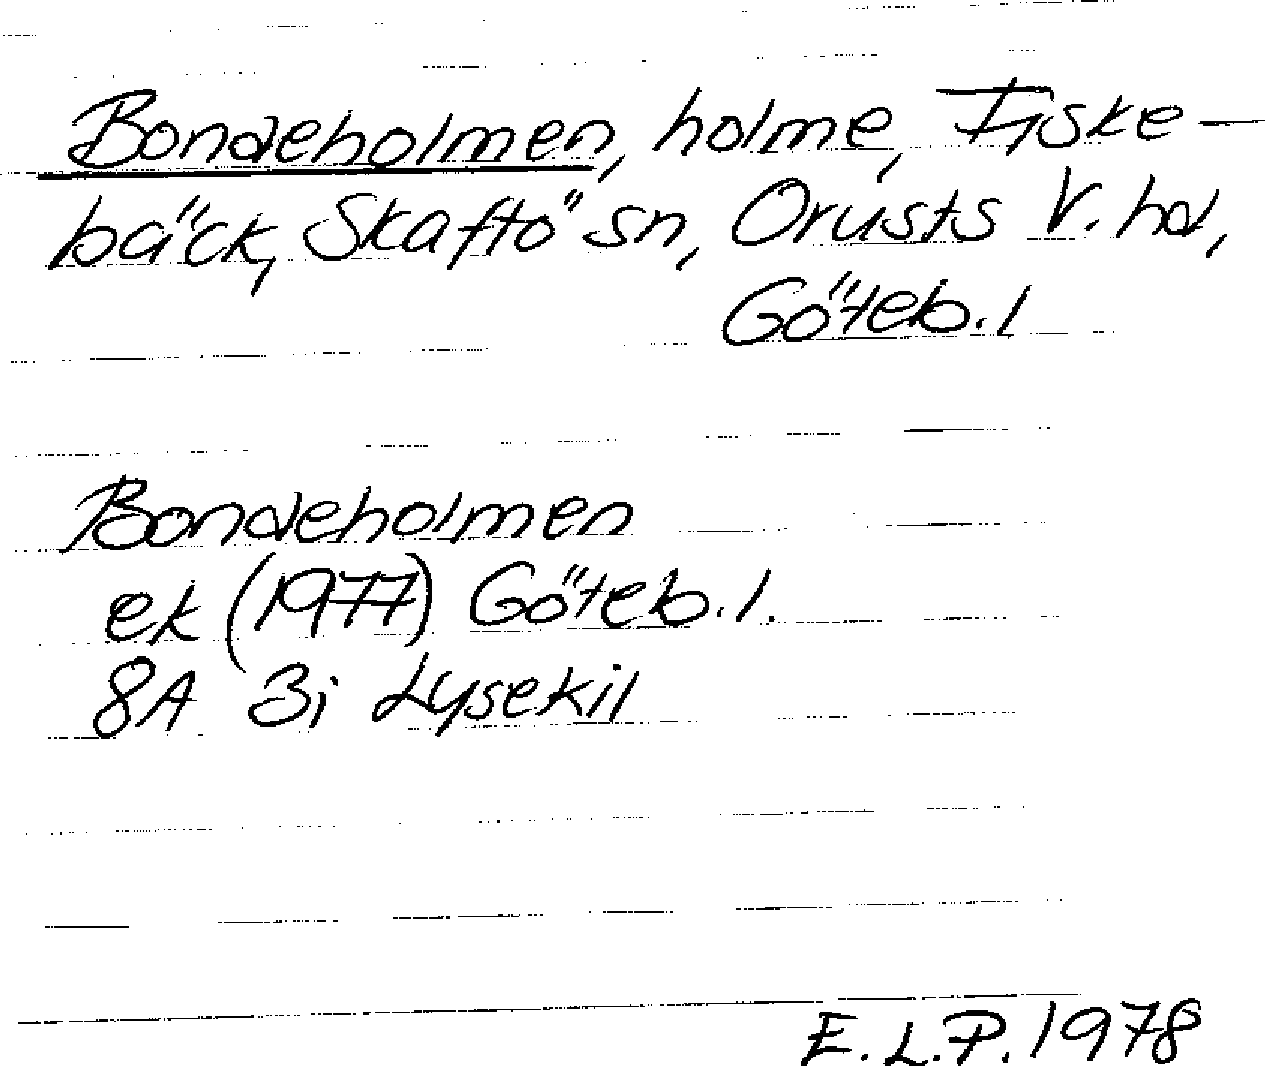 Bondeholmen, holme, Fiske-
bäck, Skaftö sn, Orusts V. hd,
Göteb. l
Bondeholmen
ek (1977) Göteb. l.
8A 3i Lysekil
E. L. P. 1978